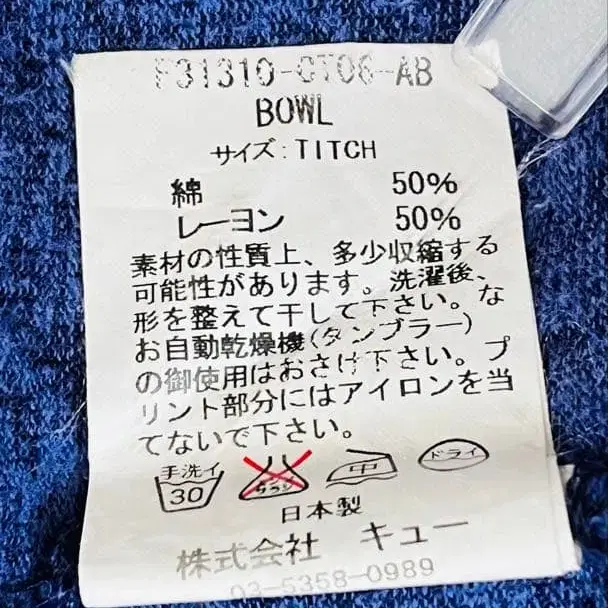 F31310-CT06-AB
BOWL
サイズ:TITCH
綿 50%
レーヨン 50%
素材の性質上、多少収縮する
可能性があります。洗濯後、
形を整えて干して下さい。な
お自動乾燥機(タンブラー)
の御使用はおさけ下さい。プ
リント部分にはアイロンを当
てないで下さい。
手洗イ 30 エンソサラシ 中 ドライ
日本製
株式会社 キュー
03-5358-0989